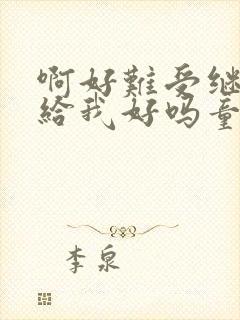 啊好難受继
給我好吗童
李泉